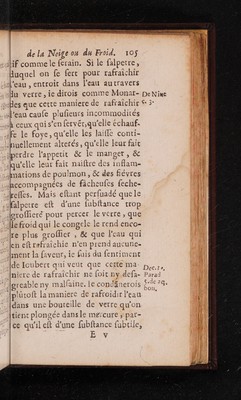 de la Neige ou du Froid. 105
if comme le serain. Si le salpetre,
duquel on se sert pour rafraîchir
l'eau, entroit dans l'eau au travers
du verre, je dirois comme Monar-
des que cette maniere de rafraîchir
l'eau cause plusieurs incommodités
à ceux qui s'en servẽt, qu'elle échauf-
fe le foye, qu'elle les laisse conti-
nuellement alterés, qu'elle leur fait
perdre l'appetit & le manger, &
qu'elle leur fait naistre des inflam-
mations de poulmon, & des fiévres
accompagnées de fâcheuses seche-
resses. Mais estant persuadé que le
salpetre est d'une substance trop
grossiere pour percer le verre, que
le froid qui le congele le rend enco-
re plus grossier, & que l'eau qui
en est rafraîchie n'en prend aucune-
ment la saveur, je suis du sentiment
de Ioubert qui veut que cette ma-
niere de rafraîchir ne soit ny desa-
greable ny malsaine. Ie condãnerois
plûtost la maniere de rafroidir l'eau
dans une bouteille de verre qu'on
tient plongée dans le mercure, par-
ce qu'il est d'une substance subtile,
E v
De Niue
Dec. 1.
Parad